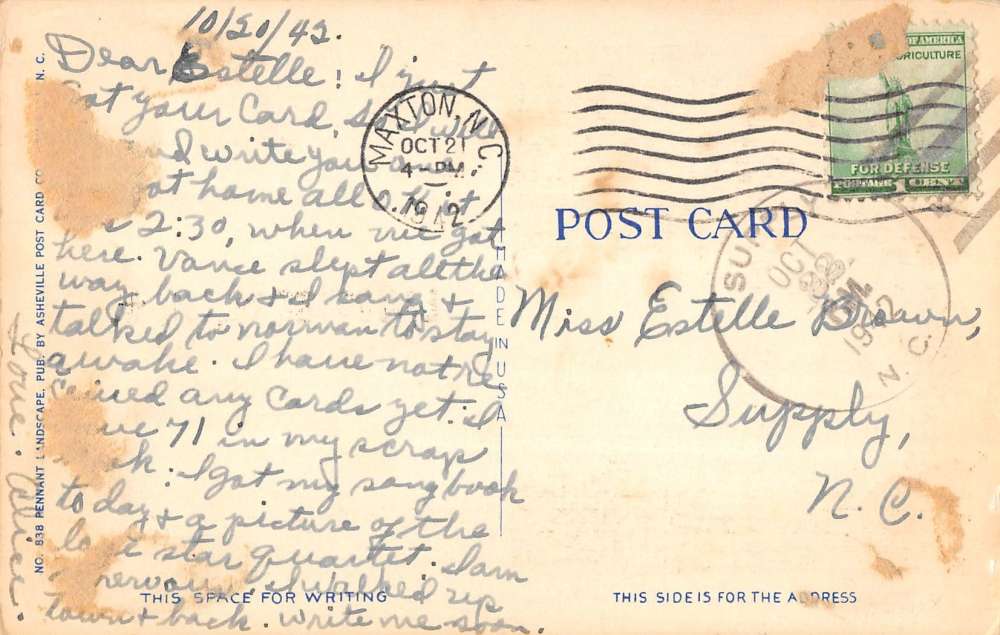 10/20/42.
Dear Estelle! I just
got your Card, so I will
write you
at home all
2:30, when we got
here. Vance slept all the
way back & I sang &
talked to norman to stay
awake. I have not re
ceived any Cards yet. I
71 in my scrap
I got my song book
today & a picture of the
star quartet. I am
nervous. I walked up
town & back. Write me soon.
Love.
NO. 838 PENNANT LANDSCAPE, PUB. BY ASHEVILLE POST CARD CO. N. C.
MADE IN USA
THIS SPACE FOR WRITING
MAXTON, N.C.
OCT 21
4-PM
1942
OF AMERICA
AGRICULTURE
FOR DEFENSE
POSTAGE 1 CENT
POST CARD
SUPPLY
OCT
1942
N. C.
Miss Estelle Brown,
Supply,
N.C.
THIS SIDE IS FOR THE ADDRESS